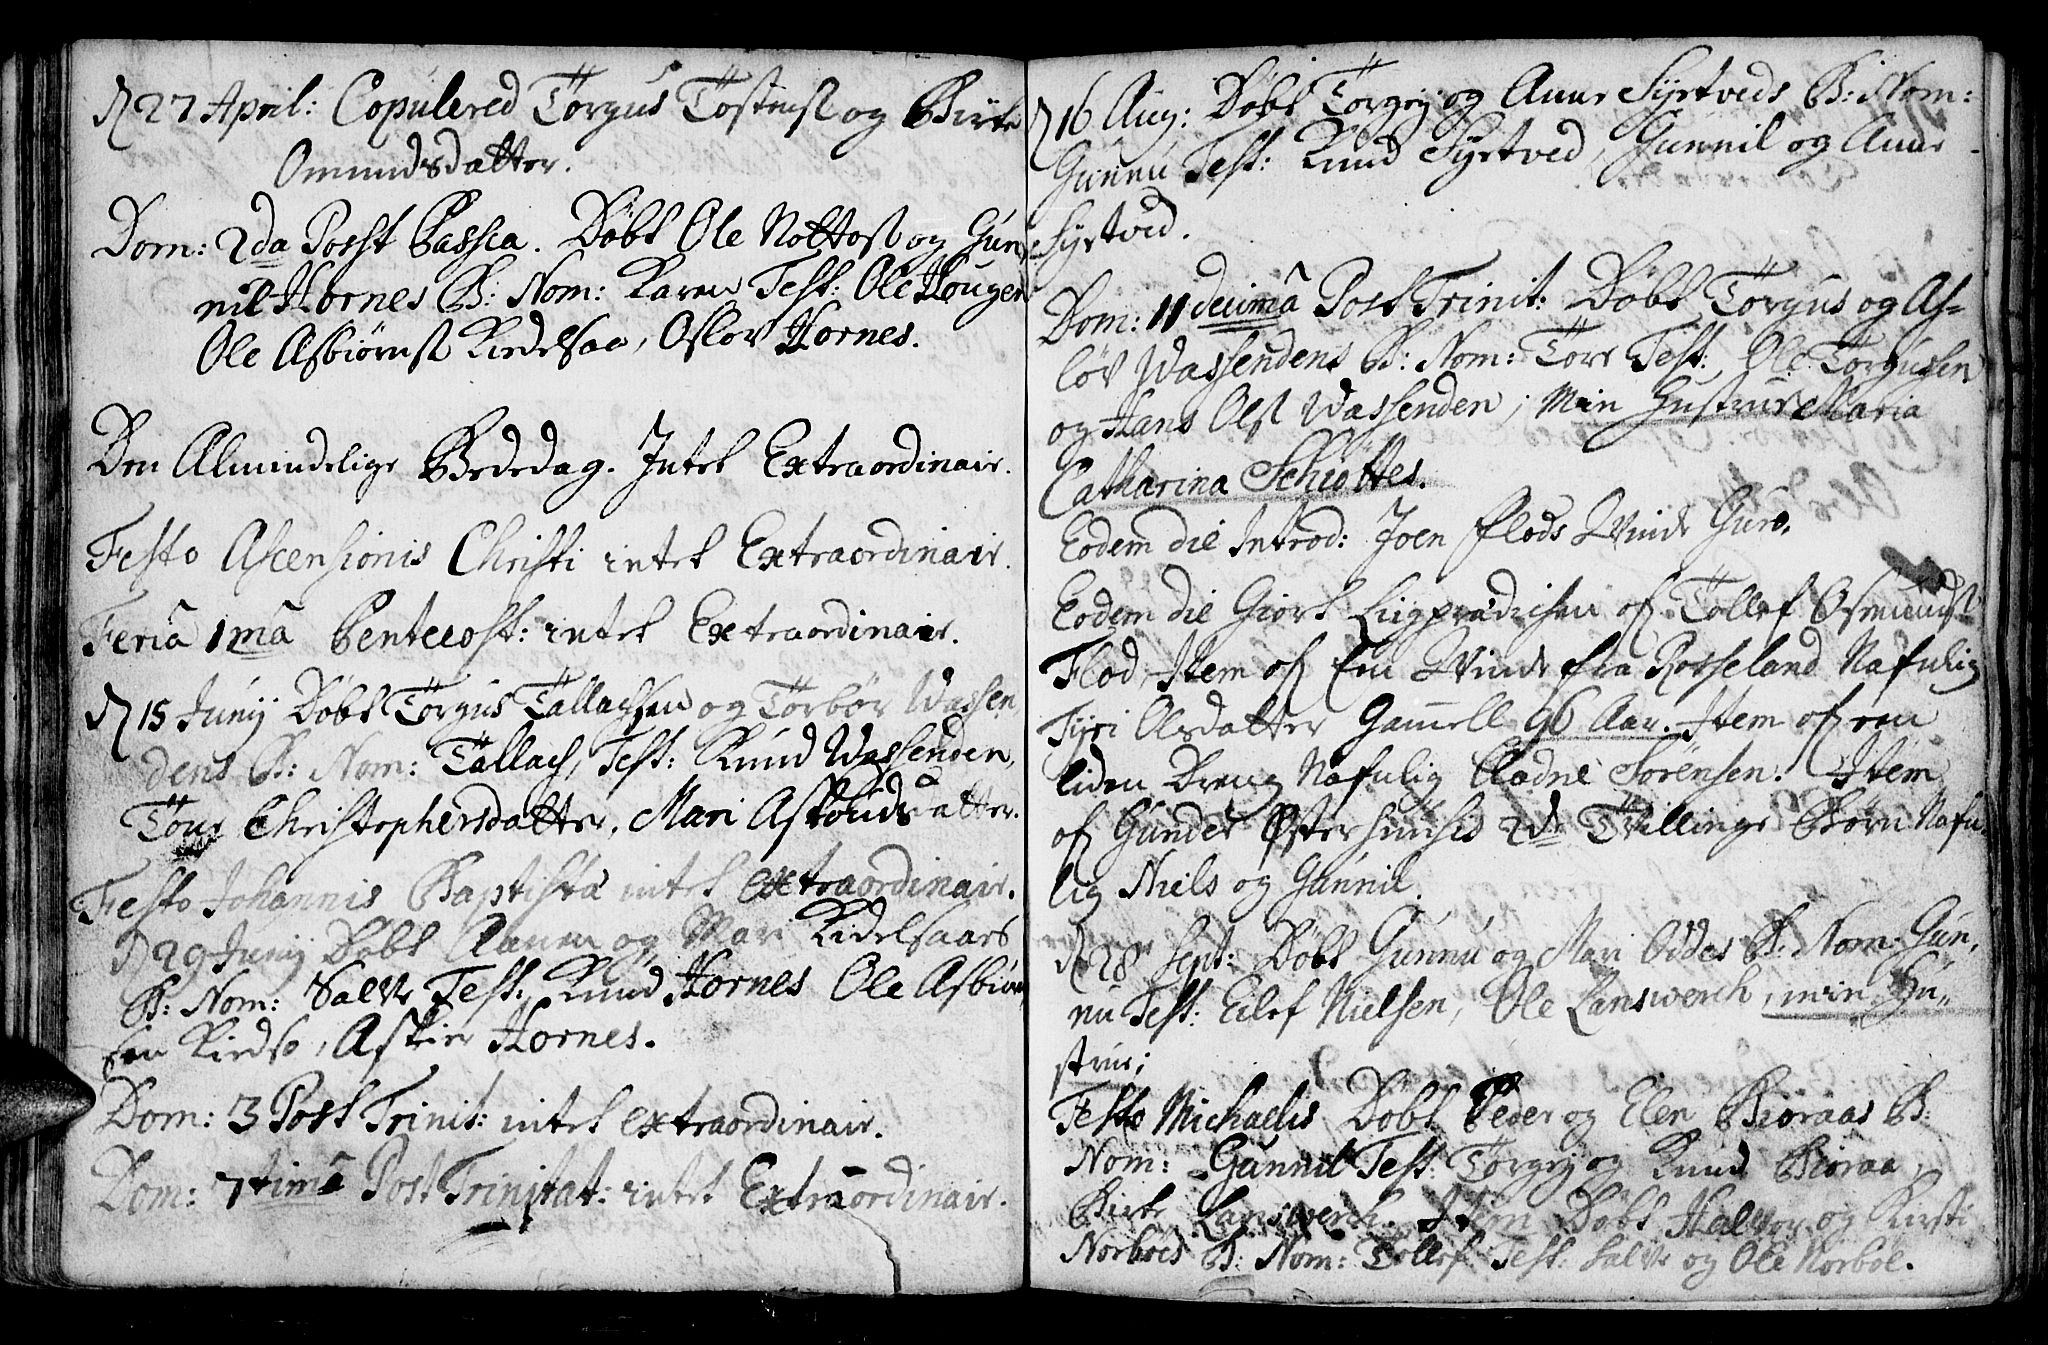 d 27 April: Copulered Torgus Tostensl og Birte
Omundsdatter.
Dom: 2da Post Passca. Døbt Ole Nottosl og Gun
nil Hornes B: Nom: Karen Test: Ole Houger
Ole Asbiørnsl Kiedelsaa, Oslov Hornes.
Den Almindelige Bededag. Intet Extraordinair.
Festo Ascensionis Christi intet Extraordinair.
Feriâ 1mâ Pentecost: intet Extraordinair.
d 15 Junij Døbt Torgus Tallachsen og Torbør Wassen
dens B: Nom: Tallach, Test: Knud Wassenden,
Tone Christophersdatter, Mari Asloudsdatter.
Festo Johannis Baptistæ intet extraordinair.
d 29 Junij Døbt Aanen og Mari Kidelsaaes
B: Nom: Salve Test: Knud Hornes Ole Asbiørn
sen Kiedso, Hornes.
Dom: 3 Post Trinit: intet extraordinair.
Dom: 7timâ Post Trinitat: intet Extraordinair.
d 16 Aug: Døbt Torgej og Anne Syrtveds B: Nom:
Gunnu Test: Knud Syrtved, Gunnil og Anne
Syrtved.
Dom: 11 decimâ Post Trinit: Døbt Torgus og As-
løv Wassendens B: Nom: Tore Test: Ole Torgussen
og Hans Olsl Wassenden; Min Hustrue Maria
Catharina Schiøttes.
Eodem die Introd: Joen Flods Quinde Guro.
Eodem die Giort Liigprædichen of Tollef Osmundsl
Flod, Item of En Quinde fra Rosseland Nafnlig
Tyri Olsdatter Gamell 96 Aar. Item of een
liden Dreng Nafnlig Aadne Sørensen. Item
of Gunder Østerhuuses 2de Tvillinge Børn Nafn
lig Niels og Gunnil.
d 28 Sept: Døbt Gunnu og Mari Oddes B: Nom: Gun,
nu Test: Eilef Nielsen, Ole Lanswerch, min Hu-
strue;
Festo Michaelis Døbt Peder og Elen Bioraas B:
Nom: Gunnil Test: Torgej og Knud Bioraa,
Birte Lanswerch. Item Døbt Halvor og Kirsti
Norboes B: Nom: Tollef Test: Salve og Ole Norboe.